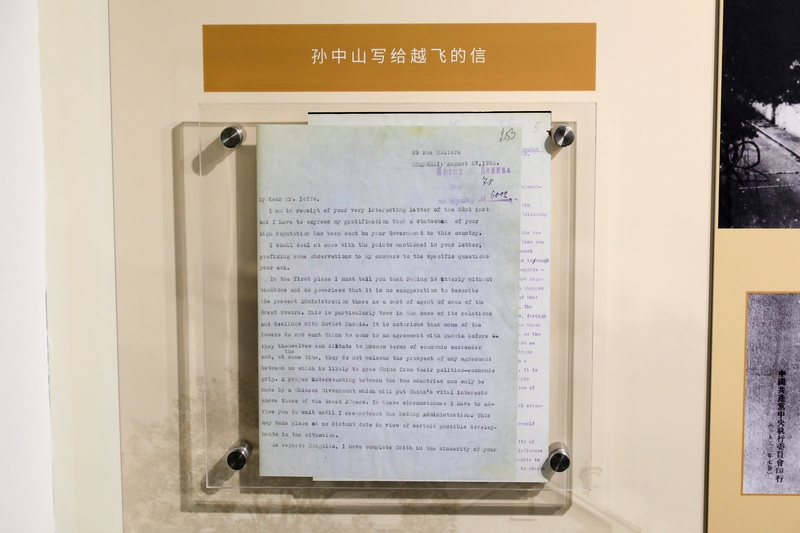 孙中山写给越飞的信
253
5
29 Rue Moliere
Shanghai, August 27, 1922.
Копия Ленина
My dear Mr. Ioffe,
I am in receipt of your very interesting letter of the 22nd inst
and I have to express my gratification that a statesman of your
high reputation has been sent by your Government to this country.
I shall deal at once with the points mentioned in your letter,
prefixing some observations to my answers to the specific questions
your ask.
In the first place I must tell you that Peking is utterly without
backbone and so powerless that it is no exaggeration to describe
the present Administration there as a sort of agent of some of the
Great Powers. This is particularly true in the case of its relations
and dealings with Soviet Russia. It is notorious that some of the
Powers do not want China to come to an agreement with Russia before
they themselves can dictate to Moscow terms of economic surrender
the
and, at some time, they do not welcome the prospect of any agreement
between us which is likely to free China from their politico-economic
grip. A proper understanding between the two countries can only be
made by a Chinese Government which will put China's vital interests
above those of the Great Powers. In these circumstances I have to ad-
vise you to wait until I reconstruct the Peking Administration. This
may take place at no distant date in view of certain possible develop-
ments in the situation.
As regards Mongolia, I have complete faith in the sincerity of your
中國共產黨中央執行委員會印行